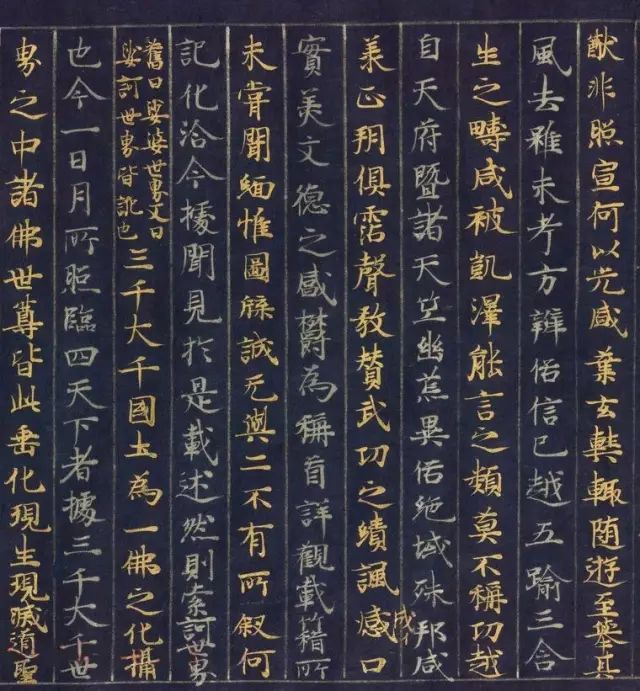 猷非照宣何以光盛葉玄奘輒随遊至舉其
風去雖未考方辨俗信已越五踰三含
生之疇咸被凱澤能言之類莫不稱功越
自天府暨諸天竺幽荒異俗絶域殊邦咸
承正朔俱霑聲教賛武功之績諷盛口
成
實美文德之盛欝為稱首詳觀載籍所
未甞聞緬惟圖牒誠无與二不有所叙何
記化洽今據聞見於是載述然則索訶世界
舊曰娑婆世界文曰
娑訶世界皆訛也
三千大千國土為一佛之化攝
也今一日月所照臨四天下者據三千大千世
界之中諸佛世尊皆此垂化現生現滅導聖